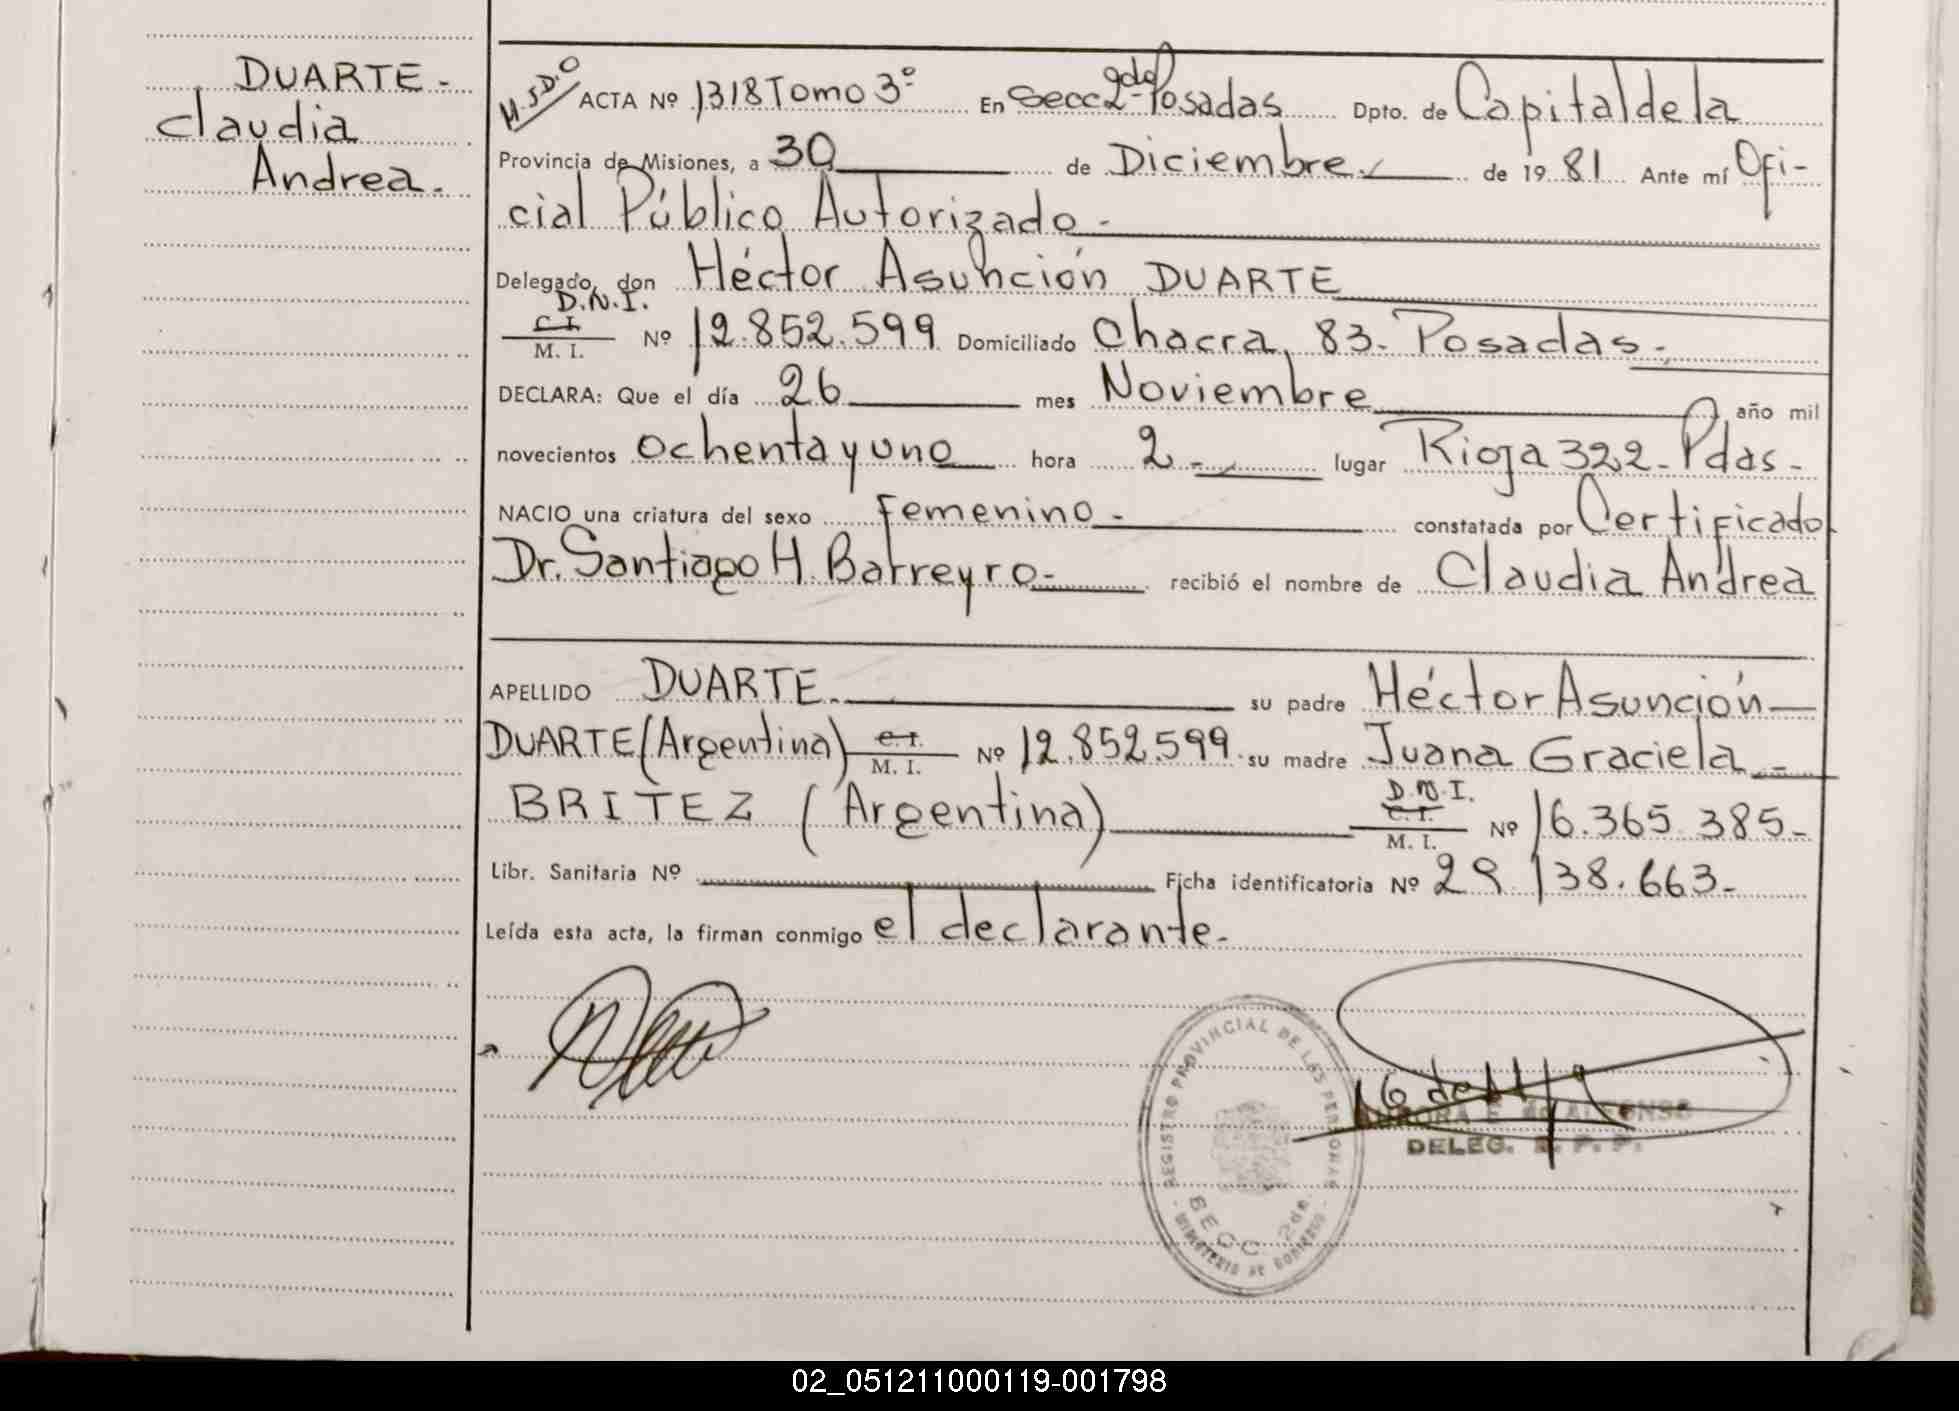 DUARTE-
Claudia
Andrea.
M.S.D.O
ACTA Nº 1318 Tomo 3º En Secc 2da Posadas Dpto. de Capital de la
Provincia de Misiones, a 30 de Diciembre. de 1981 Ante mí Ofi-
cial Público Autorizado-
Delegado, don Héctor Asunción DUARTE
D.N.I.
C. I.
M. I. Nº 12.852.599 Domiciliado Chacra, 83- Posadas-
DECLARA: Que el día 26 mes Noviembre año mil
novecientos ochenta y uno hora 2- lugar Rioja 322- Pdas-
NACIO una criatura del sexo femenino- constatada por Certificado
Dr. Santiago H. Barreyro- recibió el nombre de Claudia Andrea
APELLIDO DUARTE. su padre Héctor Asunción
DUARTE (Argentina) C. I. M. I. Nº 12.852.599. su madre Juana Graciela-
BRITEZ (Argentina) D.N.I. C. I. M. I. Nº 16.365.385-
Libr. Sanitaria Nº Ficha identificatoria Nº 29.138.663-
Leída esta acta, la firman conmigo el declarante-
REGISTRO PROVINCIAL DE LAS PERSONAS
SECC. 2da.
MINISTERIO DE GOBIERNO
AURORA de ALFONSO
DELEG. R. P. P.
02_051211000119-001798